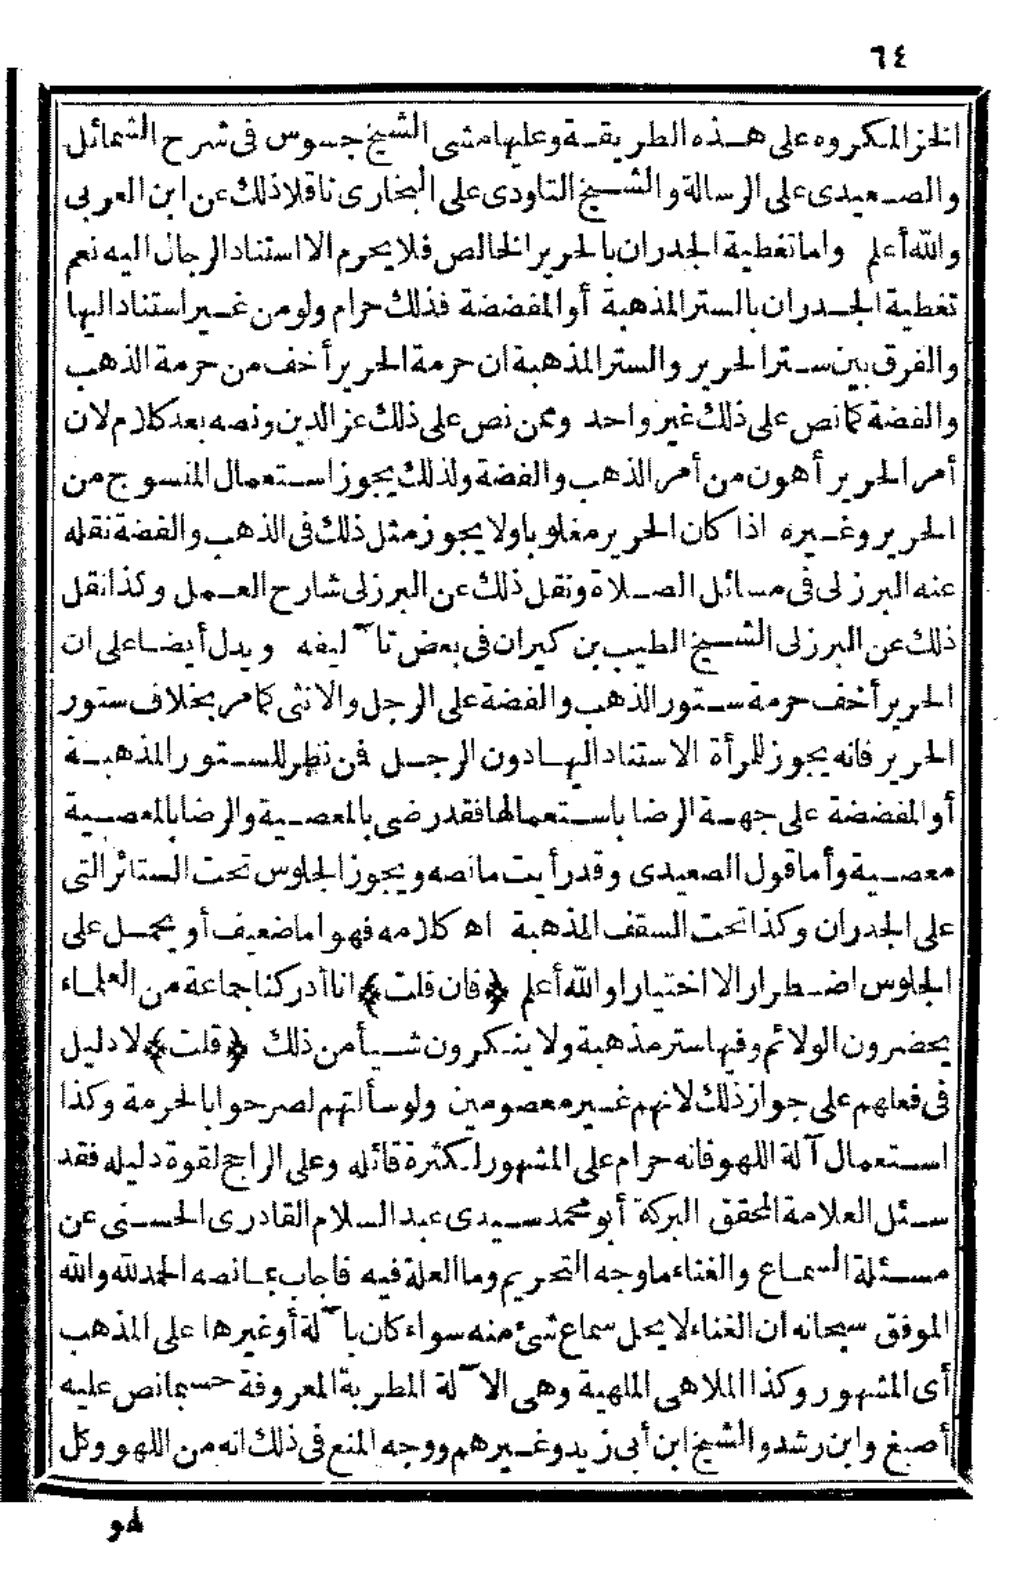 ٦٤
الخز المكروه على هذه الطريقة وعليها مشى الشيخ جسوس فى شرح الشمائل
والصعيدى على الرسالة والشيخ التاودى على البخارى ناقلا ذلك عن ابن العربى
والله أعلم واما تغطية الجدران بالحرير الخالص فلا يحرم الا استناد الرجال اليه نعم
تغطية الجدران بالستر المذهبة أو المفضضة فذلك حرام ولو من غير استناد اليها
والفرق بين ستر الحرير والستر المذهبة ان حرمة الحرير أخف من حرمة الذهب
والفضة كما نص على ذلك غير واحد وممن نص على ذلك عز الدين ونصه بعد كلام لان
أمر الحرير أهون من أمر الذهب والفضة ولذلك يجوز استعمال المنسوج من
الحرير وغيره اذا كان الحرير مغلوبا ولا يجوز مثل ذلك فى الذهب والفضة نقله
عنه البرزلى فى مسائل الصلاة ونقل ذلك عن البرزلى شارح العمل وكذا نقل
ذلك عن البرزلى الشيخ الطيب بن كيران فى بعض تآليفه ويدل أيضا على ان
الحرير أخف حرمة ستور الذهب والفضة على الرجل والانثى كما مر بخلاف ستور
الحرير فانه يجوز للمرأة الاستناد اليها دون الرجل فمن نظر للستور المذهبة
أو المفضضة على جهة الرضا باستعمالها فقد رضى بالمعصية والرضا بالمعصية
معصية وأما قول الصعيدى وقد رأيت ما نصه ويجوز الجلوس تحت الستائر التى
على الجدران وكذا تحت السقف المذهبة اه كلامه فهو اما ضعيف أو يحمل على
الجلوس اضطرارا لا اختيارا والله أعلم ﴿فان قلت﴾ انا أدركنا جماعة من العلماء
يحضرون الولائم وفيها ستر مذهبة ولا ينكرون شيأ من ذلك ﴿قلت﴾ لا دليل
فى فعلهم على جواز ذلك لانهم غير معصومين ولو سألتهم لصرحوا بالحرمة وكذا
استعمال آلة اللهو فانه حرام على المشهور لكثرة قائله وعلى الراجح لقوة دليله فقد
سئل العلامة المحقق البركة أبو محمد سيدى عبد السلام القادرى الحسنى عن
مسئلة السماع والغناء ما وجه التحريم وما العلة فيه فاجاب بما نصه الحمد لله والله
الموفق سبحانه ان الغناء لا يحل سماع شئ منه سواء كان بآلة أو غيرها على المذهب
أى المشهور وكذا الملاهى الملهية وهى الآلة المطربة المعروفة حسبما نص عليه
أصبغ وابن رشد والشيخ ابن أبى زيد وغيرهم ووجه المنع فى ذلك انه من اللهو وكل
لهو